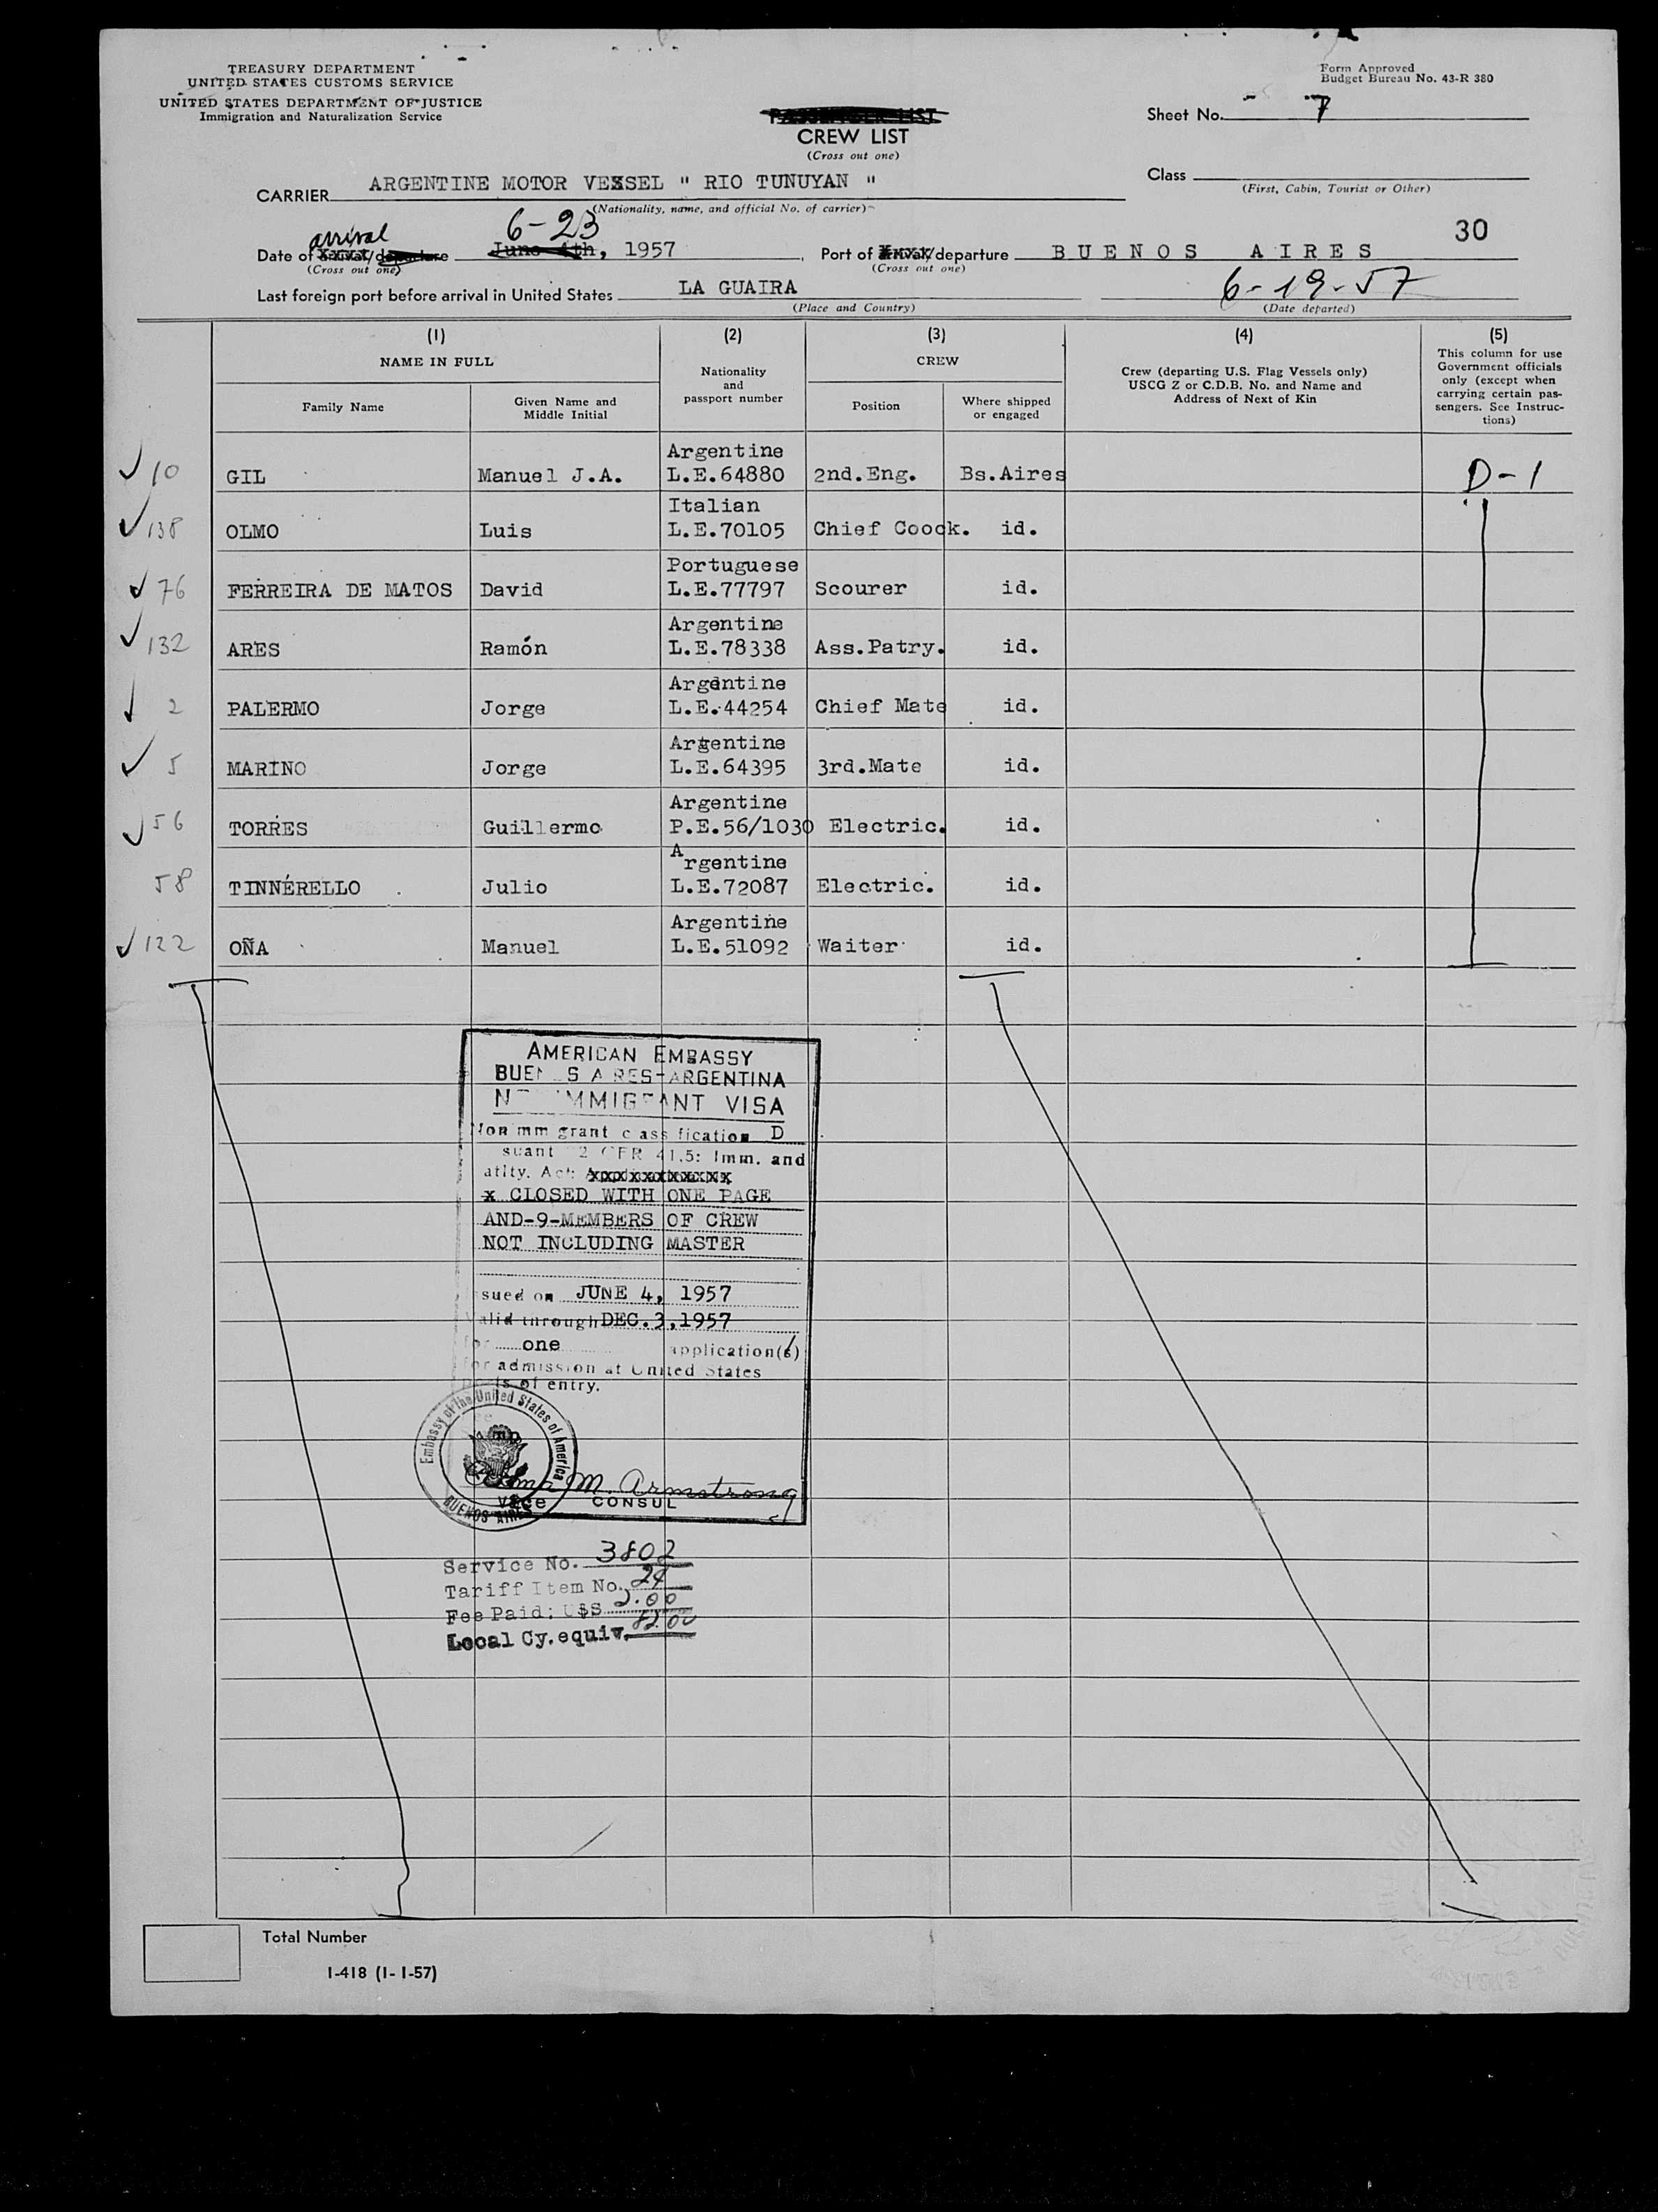 TREASURY DEPARTMENT
UNITED STATES CUSTOMS SERVICE
UNITED STATES DEPARTMENT OF JUSTICE
Immigration and Naturalization Service
Form Approved
Budget Bureau No. 43-R 380
Sheet No. 7
PASSENGER LIST
CREW LIST
(Cross out one)
Class
(First, Cabin, Tourist or Other)
CARRIER ARGENTINE MOTOR VESSEL " RIO TUNUYAN "
(Nationality, name, and official No. of carrier)
30
arrival 6-23
Date of arrival/departure June 4th, 1957
(Cross out one)
Port of arrival/departure BUENOS AIRES
(Cross out one)
Last foreign port before arrival in United States LA GUAIRA 6-19-57
(Place and Country) (Date departed)
(1) (2) (3) (4) (5)
NAME IN FULL
Family Name
Given Name and Middle Initial
Nationality and passport number
CREW
Position
Where shipped or engaged
Crew (departing U.S. Flag Vessels only)
USCG Z or C.D.B. No. and Name and
Address of Next of Kin
This column for use
Government officials
only (except when
carrying certain pas-
sengers. See Instruc-
tions)
Argentine
10 GIL Manuel J.A. L.E.64880 2nd.Eng. Bs.Aires D-1
Italian
138 OLMO Luis L.E.70105 Chief Coock. id.
Portuguese
76 FERREIRA DE MATOS David L.E.77797 Scourer id.
Argentine
132 ARES Ramón L.E.78338 Ass.Patry. id.
Argentine
2 PALERMO Jorge L.E.44254 Chief Mate id.
Argentine
5 MARINO Jorge L.E.64395 3rd.Mate id.
Argentine
56 TORRES Guillermo P.E.56/1030 Electric. id.
Argentine
58 TINNÉRELLO Julio L.E.72087 Electric. id.
Argentine
122 OÑA Manuel L.E.51092 Waiter id.
AMERICAN EMBASSY
BUENOS AIRES-ARGENTINA
NONIMMIGRANT VISA
Nonimmigrant classification D
suant 22 CFR 41.5: Imm. and
atlty. Act: xxxxxxxxxxxx
x CLOSED WITH ONE PAGE
AND-9-MEMBERS OF CREW
NOT INCLUDING MASTER
sued on JUNE 4, 1957
alid through DEC.3,1957
for one application(s)
for admission at United States
ports of entry.
Embassy of the United States of America
BUENOS AIRES
M. Armstrong
Vice CONSUL
Service No. 3802
Tariff Item No. 24
Fee Paid: U$S 2.00
Local Cy. equiv.
Total Number
I-418 (1-1-57)